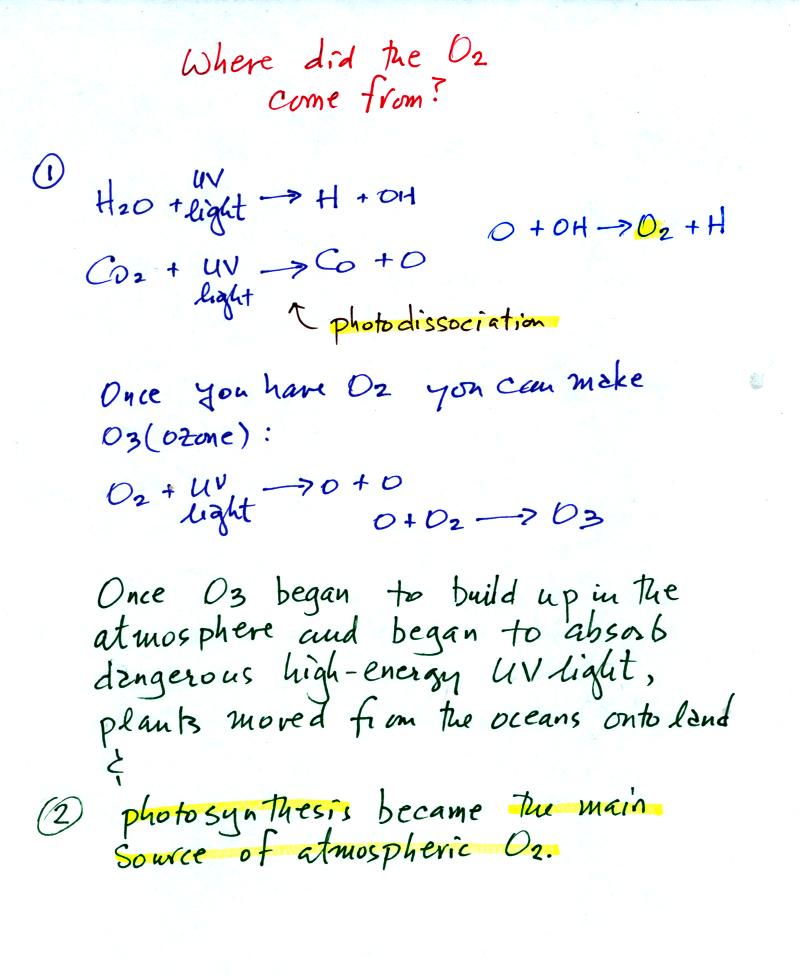 Where did the O2
come from?
①
H2O + UV light → H + OH
O + OH → O2 + H
CO2 + UV light → CO + O
↖ photodissociation
Once you have O2 you can make
O3 (ozone) :
O2 + UV light → O + O
O + O2 → O3
Once O3 began to build up in the
atmosphere and began to absorb
dangerous high-energy UV light,
plants moved from the oceans onto land
&
② photosynthesis became the main
source of atmospheric O2.